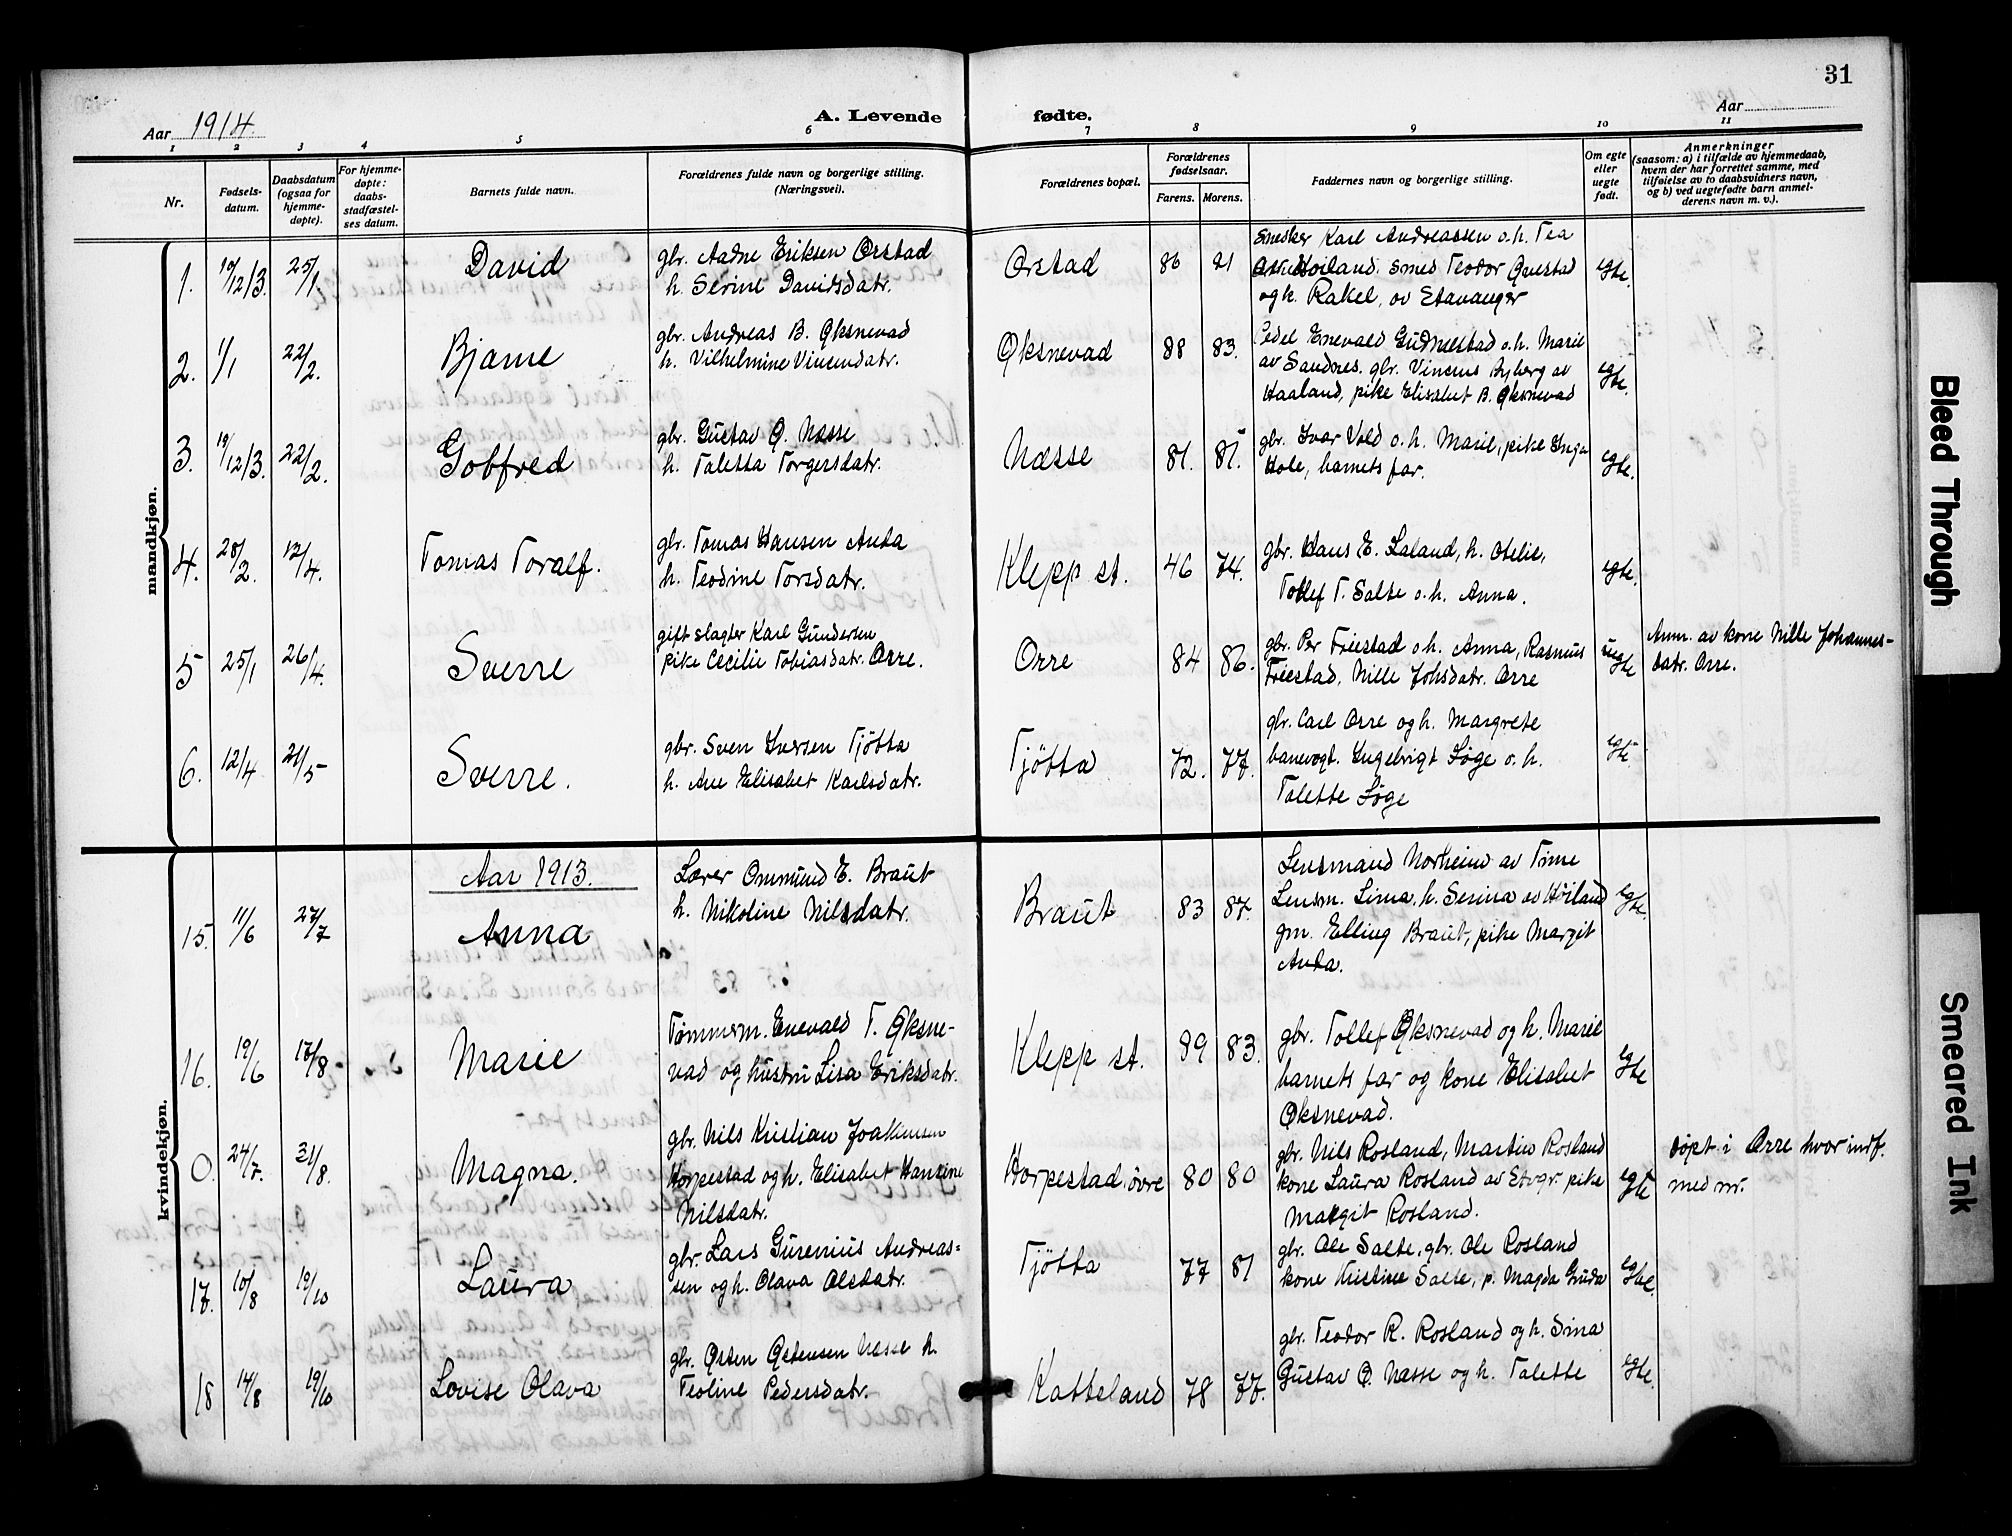 31
Aar 1914. A. Levende fødte. Aar
1 2 3 4 5 6 7 8 9 10 11
Nr.
Fødsels-
datum.
Daabsdatum
(ogsaa for
hjemme-
døpte).
For hjemme-
døpte:
daabs-
stadfæstel-
ses datum.
Barnets fulde navn.
Forældrenes fulde navn og borgerlige stilling.
(Næringsvei).
Forældrenes bopæl.
Forældrenes
fødselsaar.
Farens. Morens.
Faddernes navn og borgerlige stilling.
Om egte
eller
uegte
født.
Anmerkninger
(saasom: a) i tilfælde av hjemmedaab,
hvem der har forrettet samme, med
tilføielse av to daabsvidners navn,
og b) ved uegtefødte barn anmel-
derens navn m. v.).
mandkjøn.
1. 19/12 13. 25/1 David
gbr. Aadne Eriksen Orstad
h. Serine Davidsdatr.
Orstad 86 91
Snedker Karl Andreassen o.h. Tea
Høiland. Smed Teodor Qvestad
og h. Rakel, av Stavanger
egte.
2. 1/1 22/2. Bjarne
gbr. Andreas B. Øksnevad
h. Vilhelmine Vincensdatr.
Øksnevad 88 83.
Enevald Gudmestad o.h. Marie
av Sandnes. gbr. Vincens Ryberg av
Haaland, pike Elisabet B. Øksnevad
egte.
3. 19/12 13. 22/2. Gotfred
gbr. Gustav Q. Næsse
h. Taletta Torgersdatr.
Næsse 81. 87.
gbr. Ivar Vold o.h. Marie, pike Inga
Hole, barnets far.
egte.
4. 28/2. 12/4. Tomas Toralf.
gbr. Tomas Hansen Anda
h. Teodine Torsdatr.
Klepp st. 46 74.
gbr. Hans E. Laland, h. Otelie,
Tollef T. Salte o.h. Anna.
egte.
5 25/1 26/4. Sverre
gift slagter Karl Gundersen
pike Cecilie Tobiasdatr. Orre.
Orre 84 86.
gbr. Per Friestad o.h. Anna, Rasmus
Friestad, Nille Johsdatr. Orre
uegte
Anm. av kone Nille Johannes-
datr. Orre.
6. 12/4 21/5 Sverre.
gbr. Sven Iversen Tjøtta
h. Ane Elisabet Karlsdatr.
Tjøtta 72. 77.
gbr. Carl Orre og h. Margrete
banevogt. Ingebrigt Løge o.h.
Talette Løge
egte
kvindekjøn.
Aar 1913.
15. 11/6 27/7 Anna
Lærer Ommund E. Braut
h. Nikoline Nilsdatr.
Braut 83 87.
Lensmand Norheim av Time
Lensm. Lima, h. Serina av Høiland
gm. Elling Braut, pike Margit
Anda.
egte.
16. 19/6 17/8 Marie
Tømmerm. Enevald T. Øksne-
vad og hustru Lisa Eriksdatr.
Klepp st. 89 83.
gbr. Tollef Øksnevad og h. Marie
barnets far og kone Elisabet
Øksnevad.
egte
0. 24/7. 31/8. Magna.
gbr. Nils Kristian Joakimsen
Horpestad og h. Elisabet Hansine
Nilsdatr.
Horpestad, øvre 80 80
gbr. Nils Rosland, Martin Rosland
kone Laura Rosland av Stvgr. pike
Margit Rosland.
egte
døpt i Orre hvor indf.
med nr.
17. 10/8 19/10 Laura
gbr. Lars Gurenius Andreas-
sen og h. Olava Olsdatr.
Tjøtta 77 81
gbr. Ole Salte, gbr. Ole Rosland
kone Kristine Salte, p. Magda Gruda
egte.
18 14/8 19/10 Lovise Olava
gbr. Østen Østensen Næsse h.
Teoline Pedersdatr.
Katteland 78 77.
gbr. Teodor R. Rosland og h. Sina
Gustav Ø. Næsse og h. Talette
egte.
Bleed Through
Smeared Ink